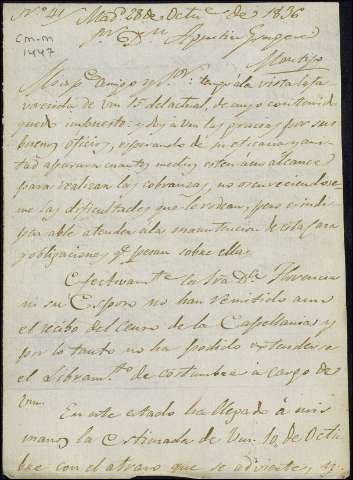 Nº 41 Madd 28 de Octue de 1836
CM-M
1447
Sr Dn Agustin
Muy Sr amigo y Sr: tengo a la vista la fa
vorecida de Vm 15 del actual, de cuyo contenido
quedo impuesto: y doy a Vm las gracias por sus
buenos oficios, esperando de su eficacia y amis
tad apurara cuantos medios esten a su alcance
para realizar las cobranzas, no oscureciendose
me las dificultades que le rodean, pero es indis
pensable atender a la manutencion de esta Casa
y obligaciones qe pesan sobre ella
Efectivamte la Sra Dª Florencia
ni su Esposo no han remitido aun
el recibo del Censo de la Capellanias, y
por lo tanto no ha podido estenderse
el Libramto de costumbre a cargo de
Vm.
En este estado ha llegado á mis
manos la Estimada de Vm. 10, de Octu
bre con el atraso que se advierte, y